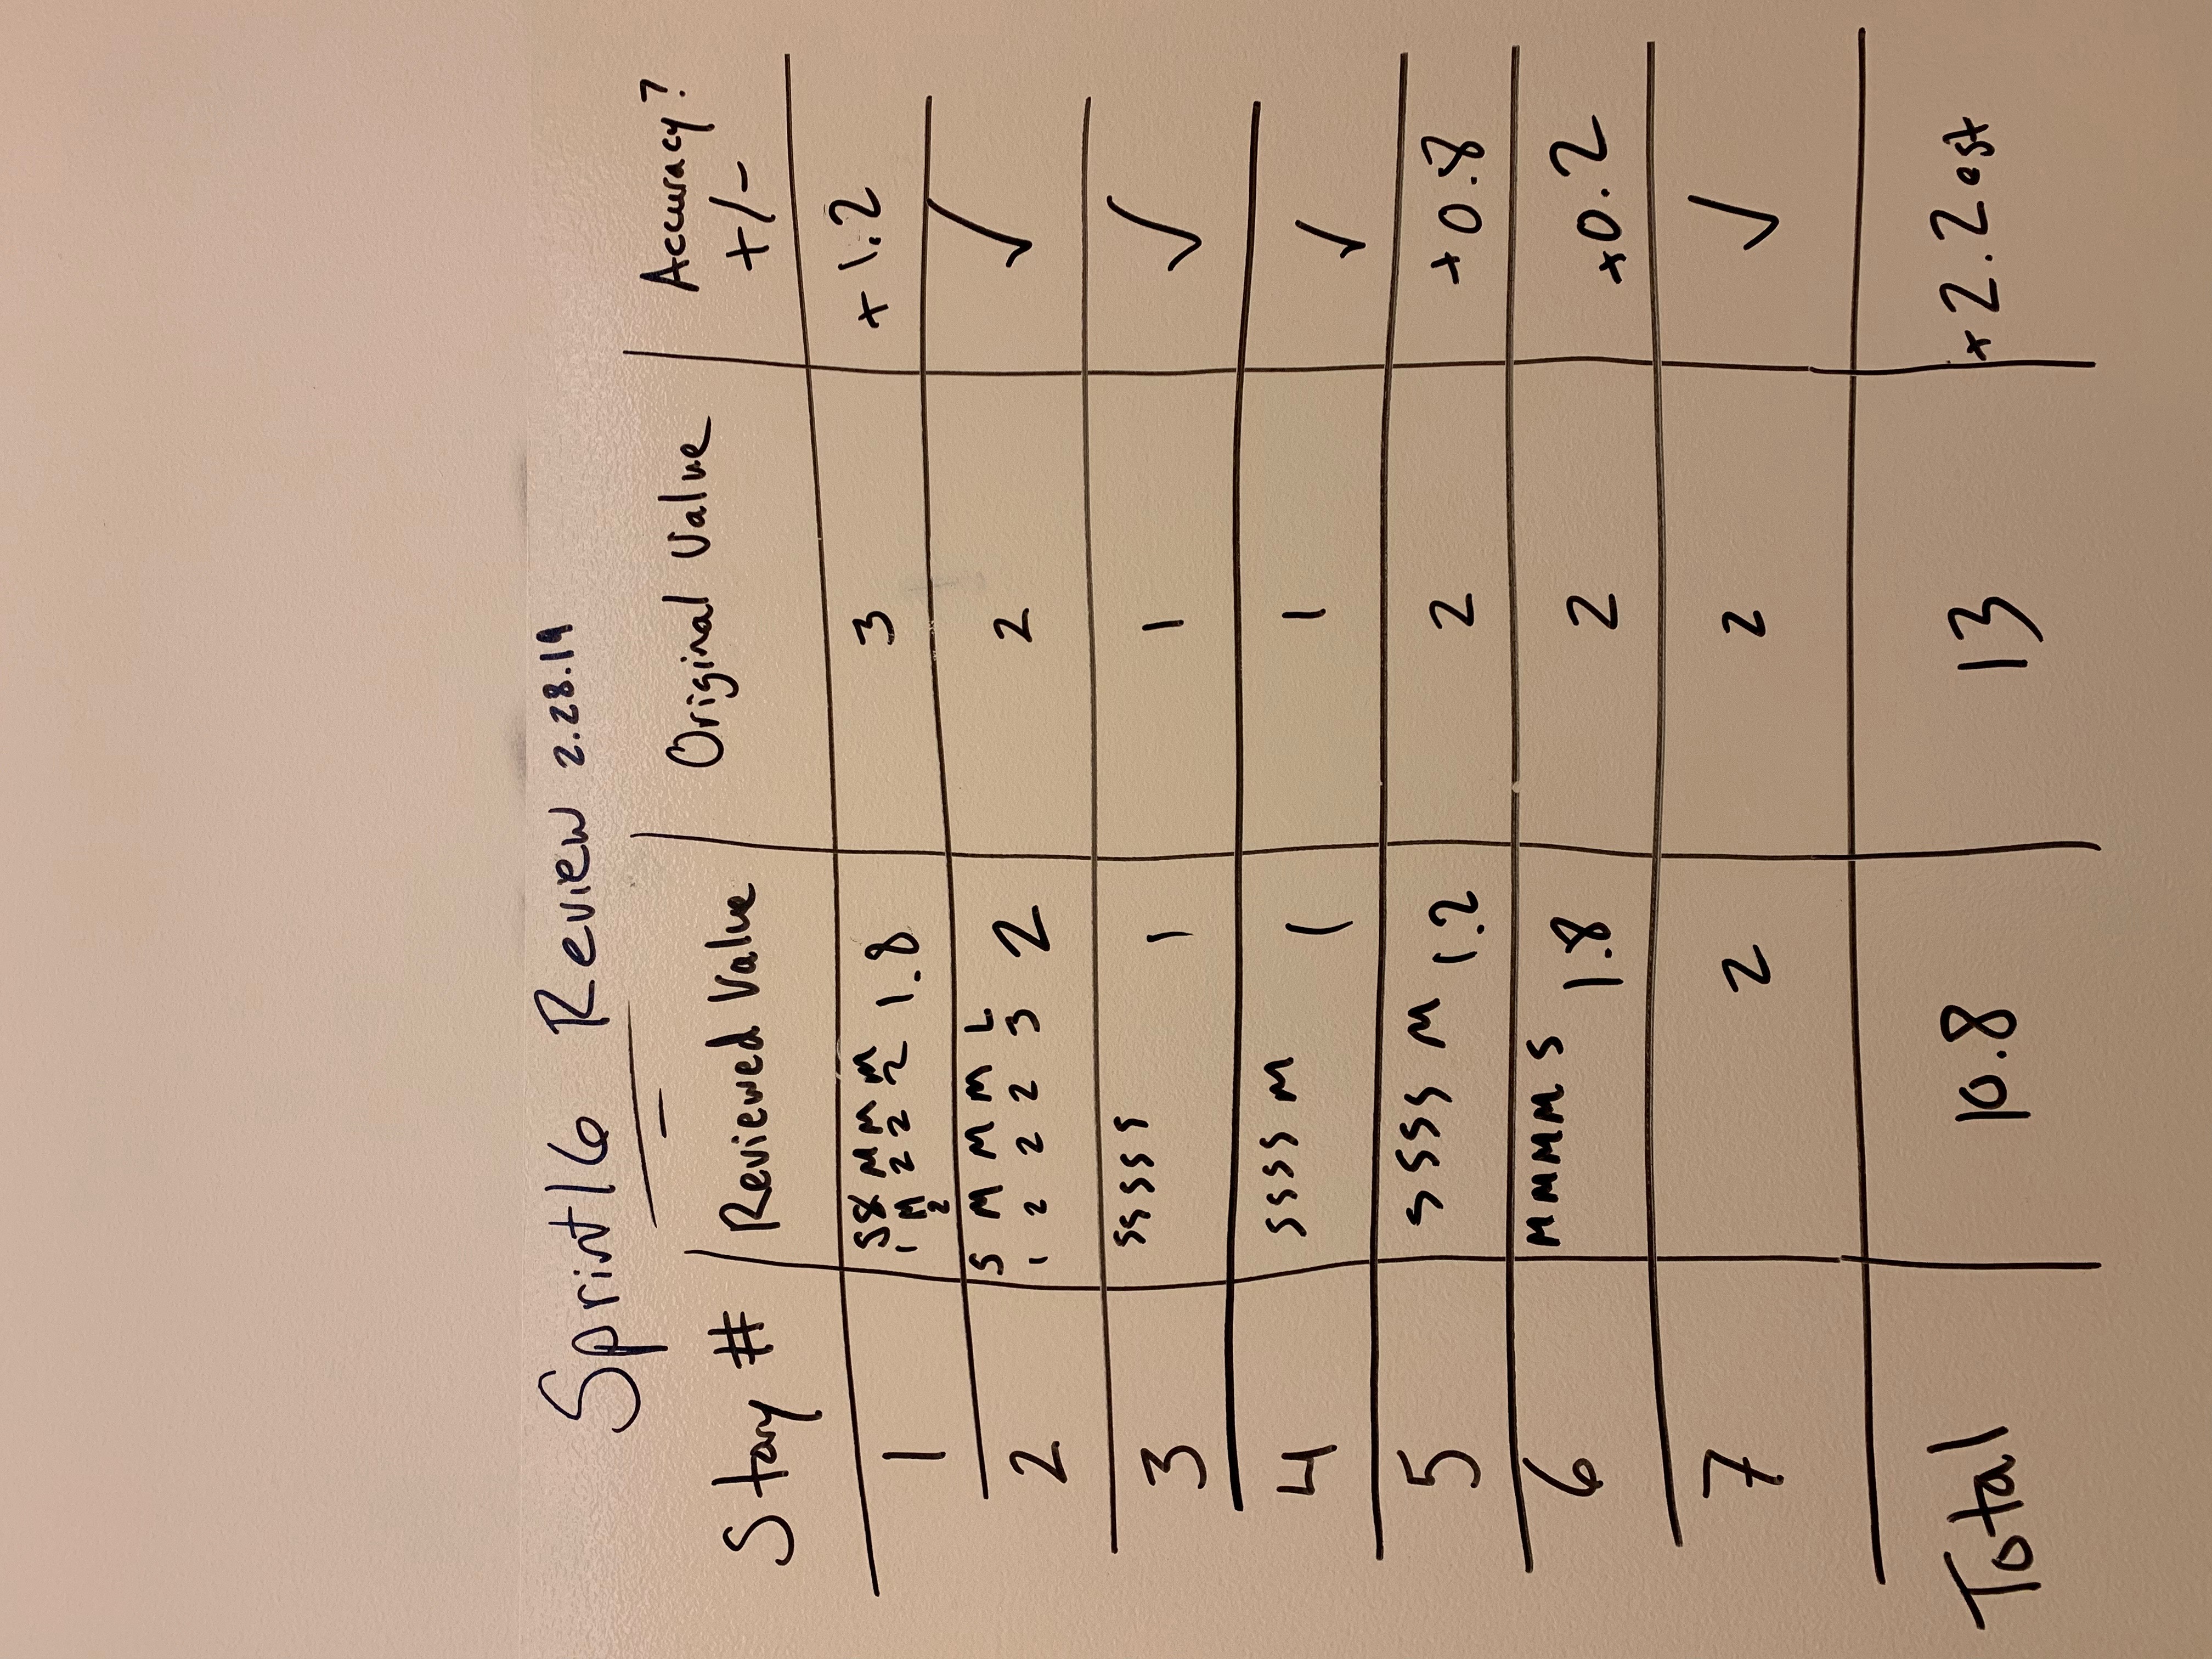 Sprint 16 Review 2.28.19
Story # Reviewed Value Original Value Accuracy? +/-
1 S S M M M 1.8 3 +1.2
1 M 2 2 2
2
2 S M M M L 2 2 ✓
1 2 2 2 3
3 S S S S S 1 1 ✓
4 S S S S M 1 1 ✓
5 S S S S M 1.2 2 +0.8
6 M M M M S 1.8 2 +0.2
7 2 2 ✓
Total 10.8 13 +2.2 est